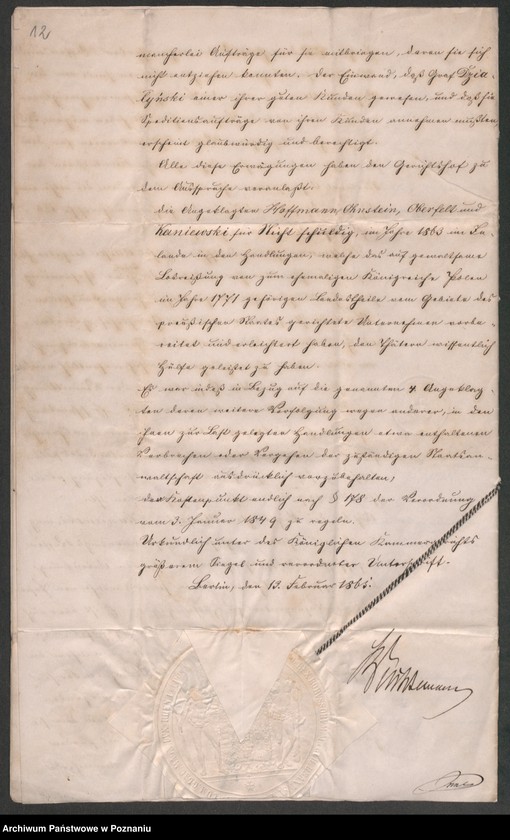 12
mancherlei Aufträge für sie mitbringen, deren sie sich
nicht entziehen konnten. Der Einwand, daß Graf Dzia-
łyński einer ihrer guten Kunden gewesen, und daß sie
Speditionsaufträge von ihren Kunden annehmen mußten,
erscheint glaubwürdig und berechtigt.
Alle diese Erwägungen haben den Gerichtshof zu
dem Ausspruche veranlaßt:
die Angeklagten Hoffmann, Ohnstein, Oberfelt und
Kaniewski für Nicht schuldig, im Jahre 1863 im In-
lande in den Handlungen, welche das auf gewaltsame
Losreißung von zum ehemaligen Königreiche Polen
im Jahre 1771 gehörigen Landestheile vom Gebiete des
preußischen Staates gerichtete Unternehmen vorbe-
reitet und erleichtert haben, den Thätern wissentlich
Hülfe geleistet zu haben.
Es war indeß in Bezug auf die genannten 4 Angeklag-
ten deren weitere Verfolgung wegen anderer, in den
ihnen zur Last gelegten Handlungen etwa enthaltenen
Verbrechen oder Vergehen der zuständigen Staatsan-
waltschaft ausdrücklich vorzubehalten;
der Kostenpunkt endlich nach § 178 der Verordnung
vom 3. Januar 1849 zu regeln.
Urkundlich unter des Königlichen Kammergerichts
größerem Siegel und verordneter Unterschrift.
Berlin, den 13. Februar 1865.
Archiwum Państwowe w Poznaniu